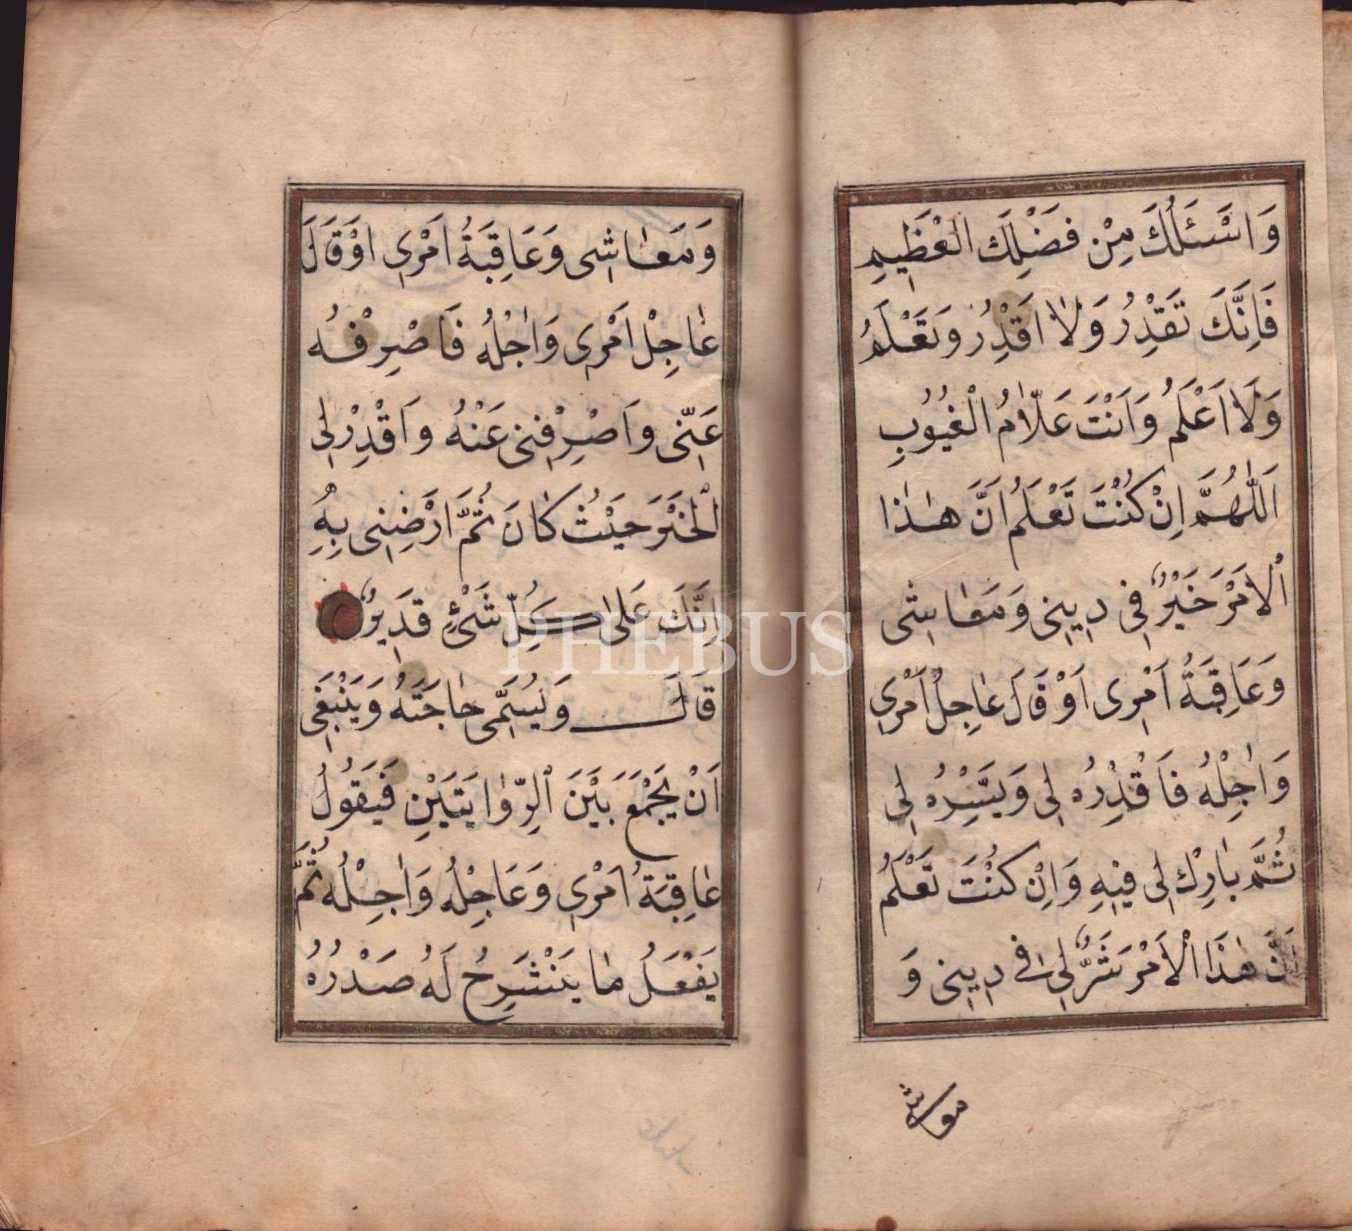 وَاَسْئَلُكَ مِنْ فَضْلِكَ الْعَظِيمِ
فَاِنَّكَ تَقْدِرُ وَلَا اَقْدِرُ وَتَعْلَمُ
وَلَا اَعْلَمُ وَاَنْتَ عَلَّامُ الْغُيُوبِ
اَللّٰهُمَّ اِنْ كُنْتَ تَعْلَمُ اَنَّ هٰذَا
الْاَمْرَ خَيْرٌ فِي دِينِي وَمَعَاشِي
وَعَاقِبَةُ اَمْرِي اَوْ قَالَ عَاجِلْ اَمْرِي
وَاٰجِلْهُ فَاَقْدُرْهُ لِي وَيَسِّرْهُ لِي
ثُمَّ بَارِكْ لِي فِيهِ وَاِنْ كُنْتَ تَعْلَمُ
اَنَّ هٰذَا الْاَمْرَ شَرٌّ لِي فِي دِينِي وَ
وَمَعَاشِي وَعَاقِبَةُ اَمْرِي اَوْ قَالَ
عَاجِلْ اَمْرِي وَاٰجِلْهُ فَاصْرِفْهُ
عَنِّي وَاَصْرِفْنِي عَنْهُ وَاَقْدِرْ لِي
الْخَيْرَ حَيْثُ كَانَ ثُمَّ اَرْضِنِي بِهِ
اِنَّكَ عَلٰى كُلِّ شَيْءٍ قَدِيرٌ
قَالَ وَيُسَمِّي حَاجَتَهُ وَيَنْبَغِي
اَنْ يَجْمَعَ بَيْنَ الرِّوَايَتَيْنِ فَيَقُولُ
عَاقِبَةُ اَمْرِي وَعَاجِلِهُ وَاٰجِلِهُ ثُمَّ
يَفْعَلُ مَا يَنْشَرِحُ لَهُ صَدْرُهُ
PHEBUS